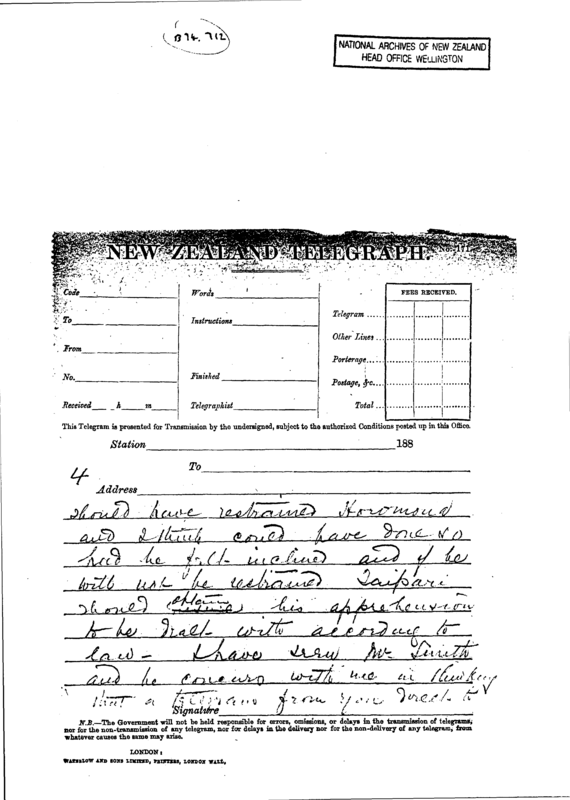 B 74. 712
NATIONAL ARCHIVES OF NEW ZEALAND
HEAD OFFICE WELLINGTON
NEW ZEALAND TELEGRAPH.
Code
Words
FEES RECEIVED.
To
Instructions
Telegram
Other Lines
From
Porterage
No.
Finished
Postage, &c.
Received h m
Telegraphist
Total
This Telegram is presented for Transmission by the undersigned, subject to the authorized Conditions posted up in this Office.
Station 188
4
To
Address
should have restrained
and I think could have done so
had he felt inclined and if he
will not be restrained Taipari
should obtain his apprehension
to be dealt with according to
law - I have seen Mr Smith
and he concurs with me in thinking
that a telegram from you direct to
Signature
N.B.—The Government will not be held responsible for errors, omissions, or delays in the transmission of telegrams;
nor for the non-transmission of any telegram, nor for delays in the delivery nor for the non-delivery of any telegram, from
whatever causes the same may arise.
LONDON:
WATERLOW AND SONS LIMITED, PRINTERS, LONDON WALL.